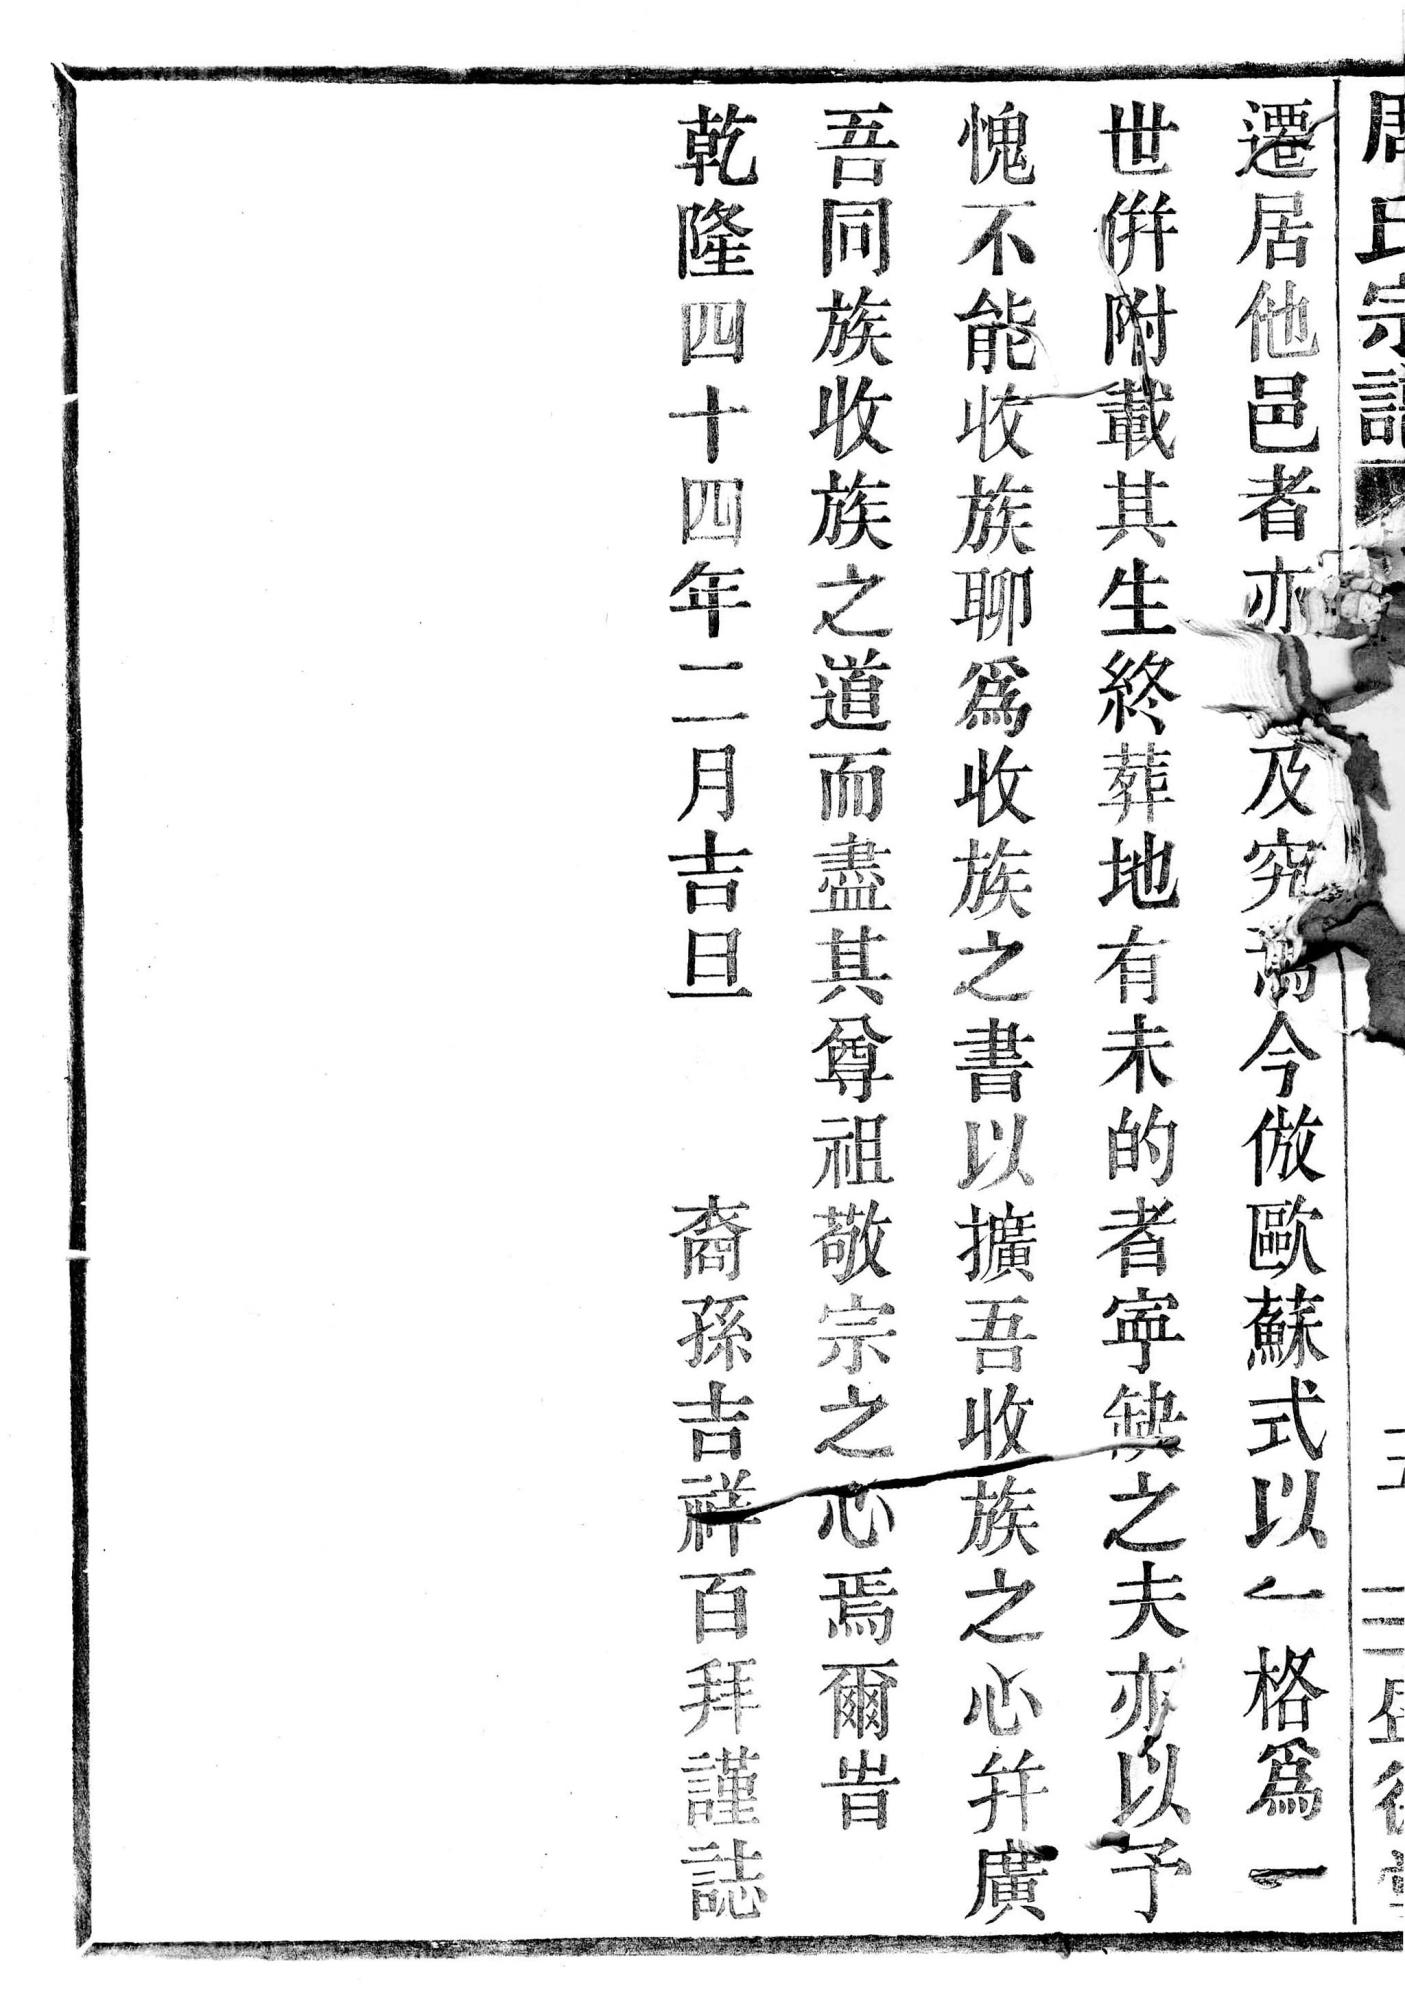 周氏宗譜
遷居他邑者亦及究濷今倣歐蘇式以一格為一
世倂附載其生終葬地有未的者寕缺之夫亦以予
愧不能收族聊爲收族之書以擴吾收族之心幷廣
吾同族收族之道而盡其尊祖敬宗之心焉爾旹
乾隆四十四年二月吉旦 裔孫吉祥百拜謹誌